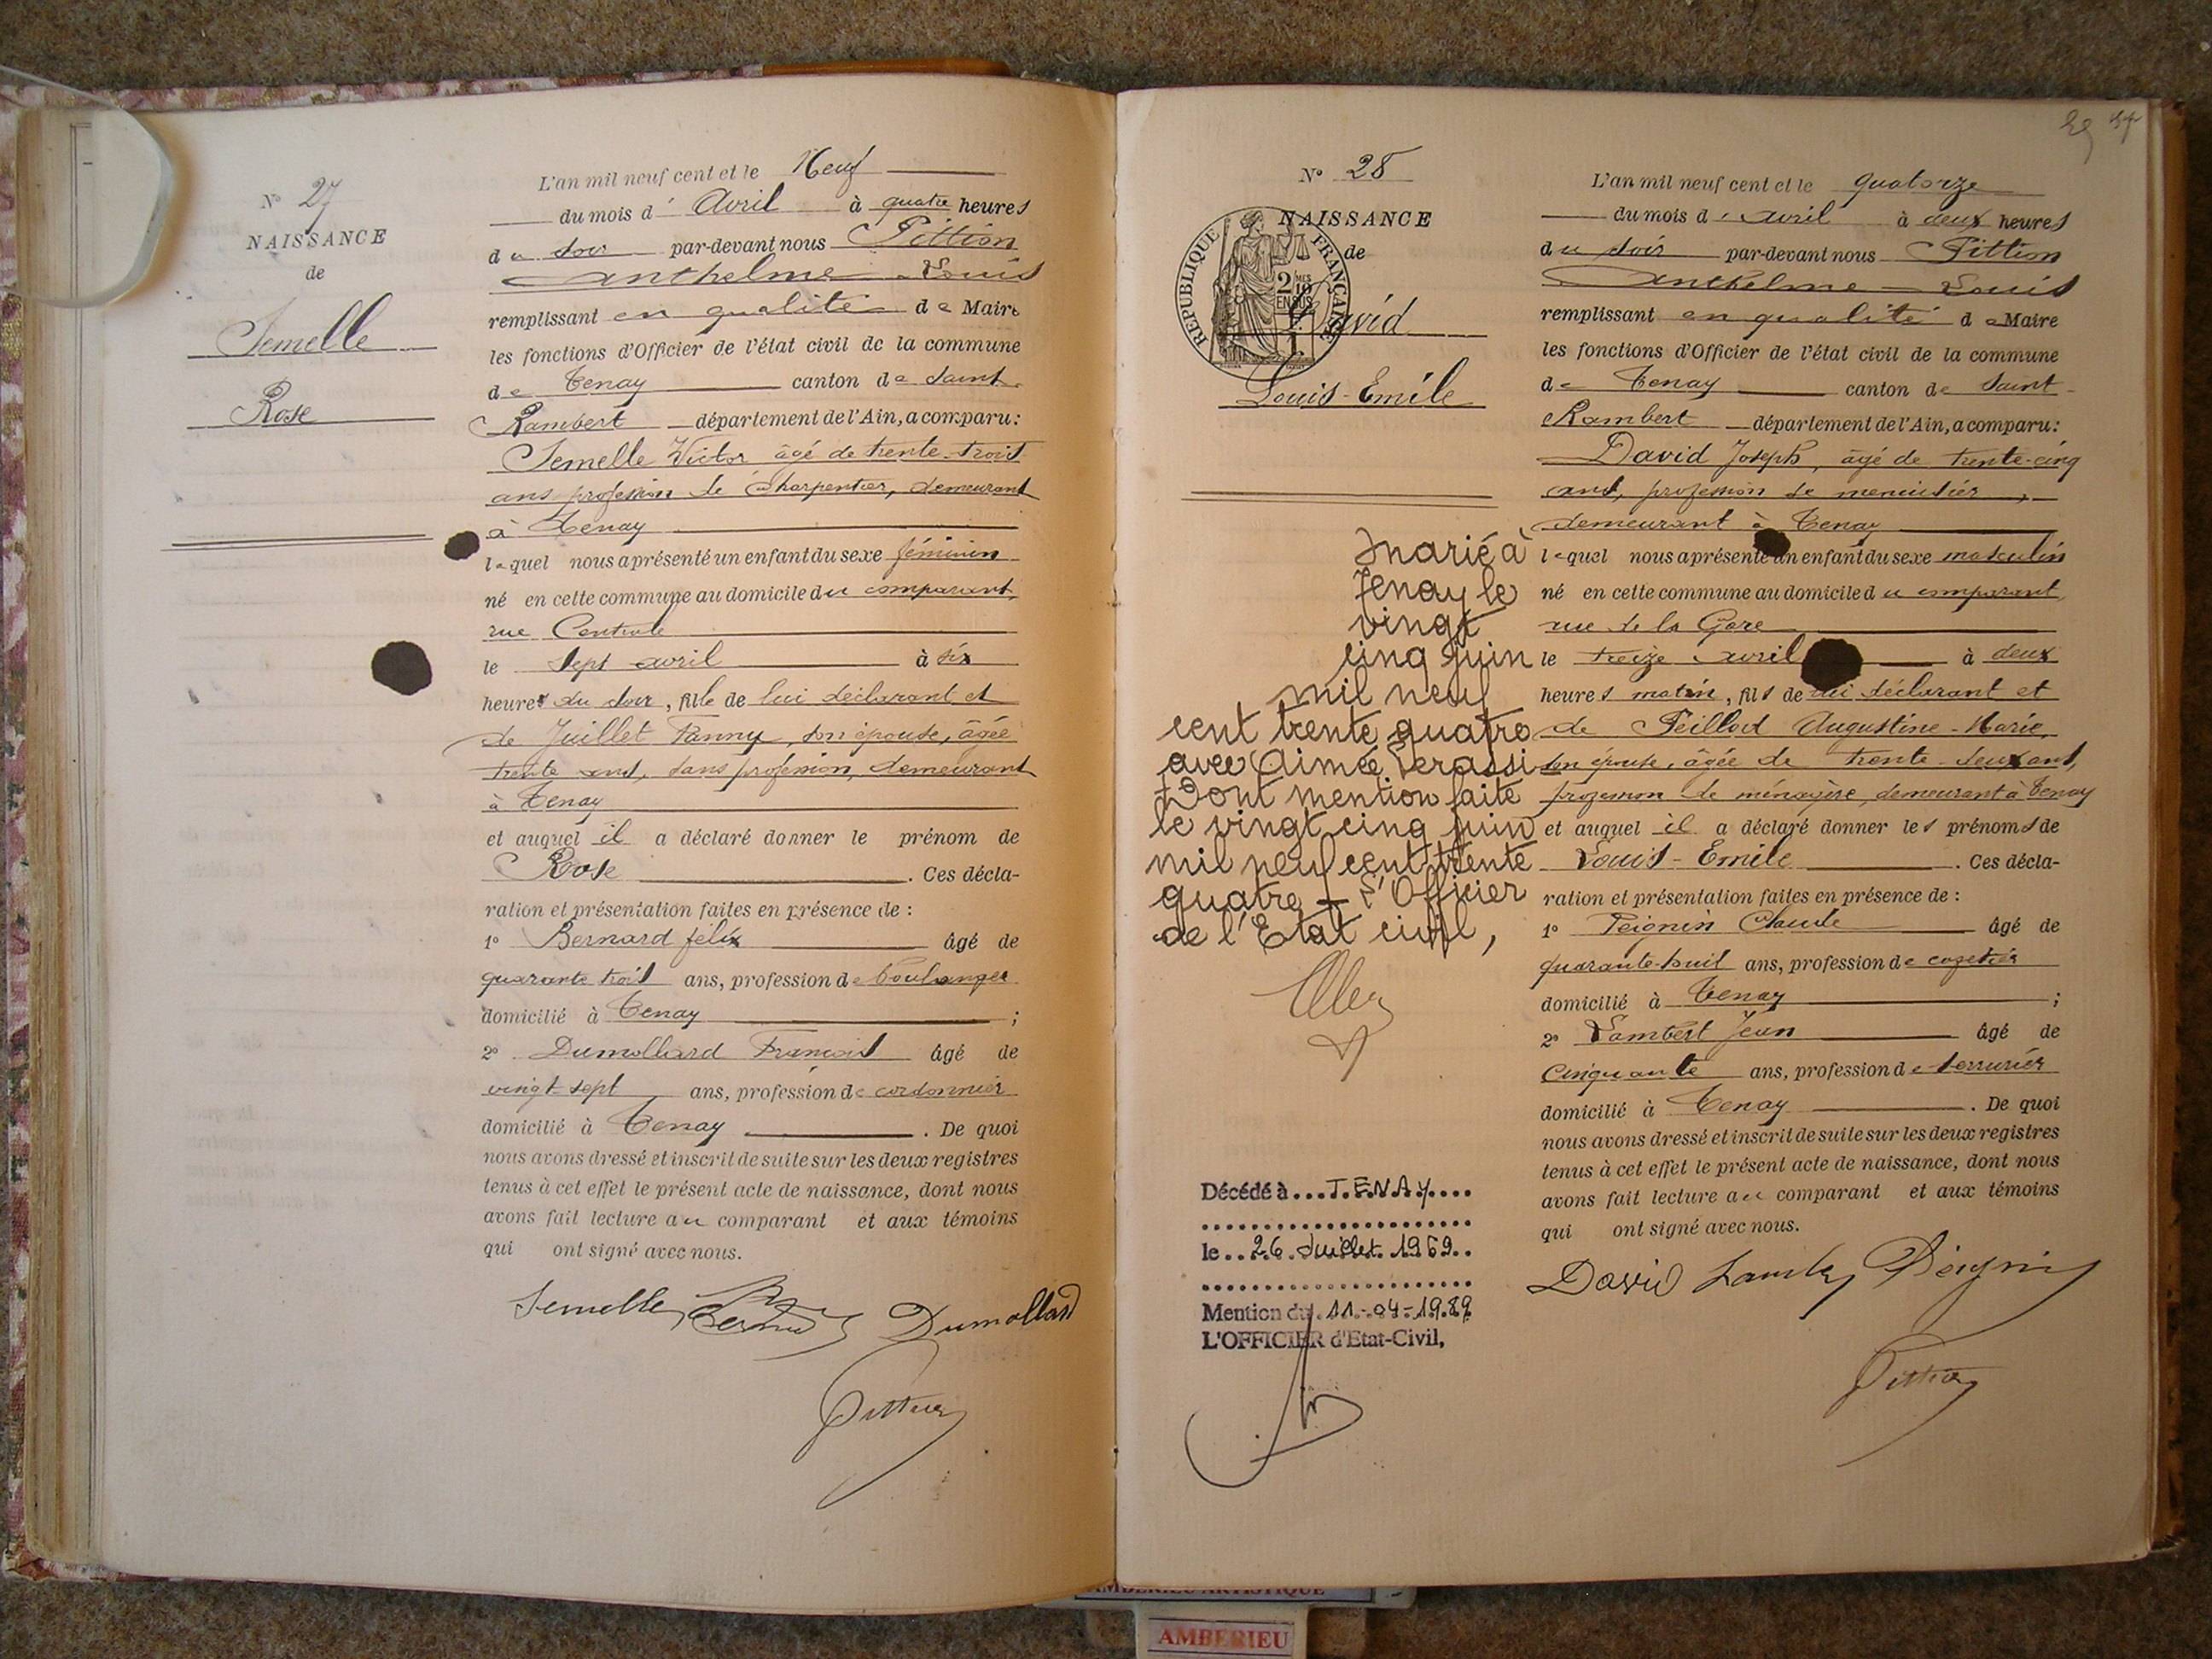 N° 27
NAISSANCE
de
Semelle
Rose
L'an mil neuf cent et le Neuf
du mois d' Avril à quatre heures
du soir par-devant nous Pittion
Anthelme Louis
remplissant en qualité de Maire
les fonctions d'Officier de l'état civil de la commune
de Tenay canton de Saint-
Rambert département de l'Ain, a comparu:
Semelle Victor âgé de trente-trois
ans profession de charpentier, demeurant
à Tenay
lequel nous a présenté un enfant du sexe féminin
né en cette commune au domicile du comparant,
rue Centrale
le sept avril à six
heures du soir, fille de lui déclarant et
de Juillet Fanny, son épouse, âgée
trente ans, sans profession, demeurant
à Tenay
et auquel il a déclaré donner le prénom de
Rose. Ces décla-
ration et présentation faites en présence de :
1° Bernard félix âgé de
quarante trois ans, profession de boulanger
domicilié à Tenay ;
2° Dumollard François âgé de
vingt-sept ans, profession de cordonnier
domicilié à Tenay. De quoi
nous avons dressé et inscrit de suite sur les deux registres
tenus à cet effet le présent acte de naissance, dont nous
avons fait lecture au comparant et aux témoins
qui ont signé avec nous.
Semelle Bernard Dumollard
Pittion
29
N° 28
NAISSANCE
de
REPUBLIQUE FRANÇAISE
2/10 EN SUS
David
Louis-Emile
Marié à
Tenay le
vingt
cinq juin
mil neuf
cent trente quatre
avec Aimée Perassi
Dont mention faite
le vingt cinq juin
mil neuf cent trente
quatre - L'Officier
de l'Etat civil,
Décédé à ... TENAY....
le .. 26 Juillet 1969..
Mention du . 11-04-1989
L'OFFICIER d'Etat-Civil,
L'an mil neuf cent et le quatorze
du mois d' avril à deux heures
du soir par-devant nous Pittion
Anthelme Louis
remplissant en qualité de Maire
les fonctions d'Officier de l'état civil de la commune
de Tenay canton de Saint-
Rambert département de l'Ain, a comparu:
David Joseph, âgé de trente-cinq
ans, profession de menuisier,
demeurant à Tenay
lequel nous a présenté un enfant du sexe masculin
né en cette commune au domicile du comparant
rue de la Gare
le treize avril à deux
heures matin, fils de lui déclarant et
de Peillod Augustine-Marie,
son épouse, âgée de trente-deux ans,
profession de ménagère, demeurant à Tenay
et auquel il a déclaré donner les prénoms de
Louis-Emile. Ces décla-
ration et présentation faites en présence de :
1° Peignin Claude âgé de
quarante-huit ans, profession de cafetier
domicilié à Tenay ;
2° Lambert Jean âgé de
cinquante ans, profession de serrurier
domicilié à Tenay. De quoi
nous avons dressé et inscrit de suite sur les deux registres
tenus à cet effet le présent acte de naissance, dont nous
avons fait lecture au comparant et aux témoins
qui ont signé avec nous.
David Peignin
Pittion
AMBERIEU ARTISTIQUE
AMBERIEU